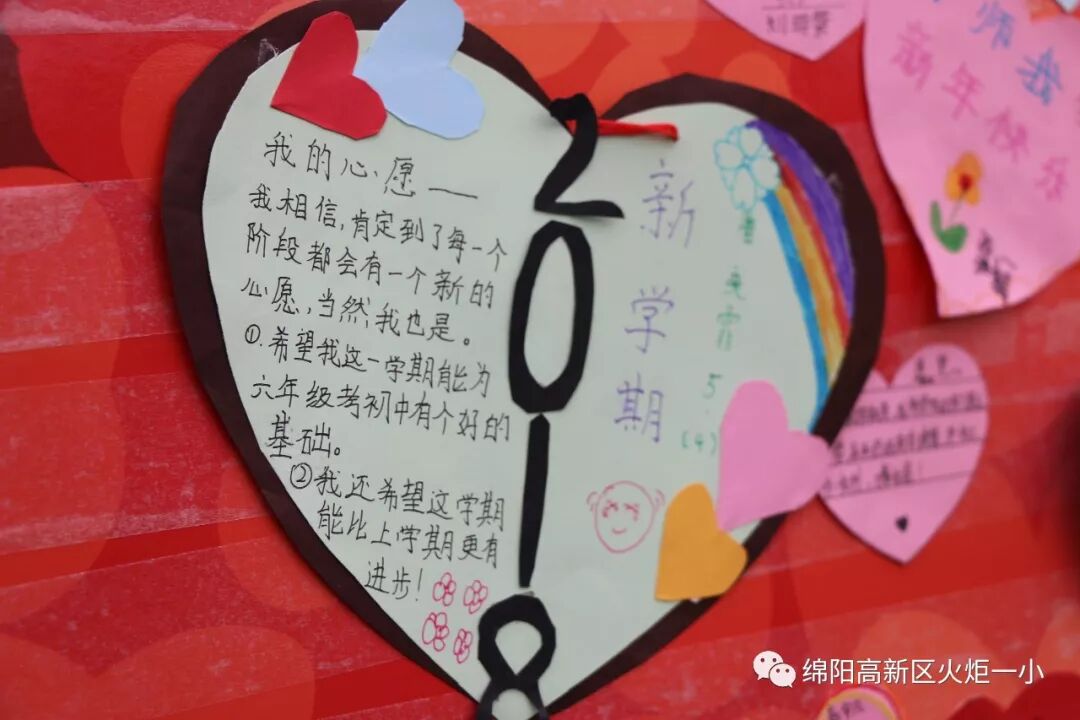 我的心愿——
我相信，肯定到了每一个
阶段都会有一个新的
心愿，当然，我也是。
①.希望我这一学期能为
六年级考初中有个好的
基础。
②我还希望这学期
能比上学期更有
进步！
2018
新学期
5.(4)
师我
新年快乐
绵阳高新区火炬一小